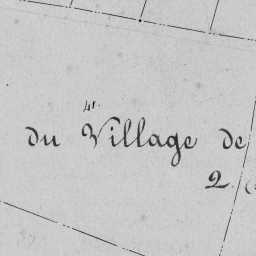 41.
du Village de
2